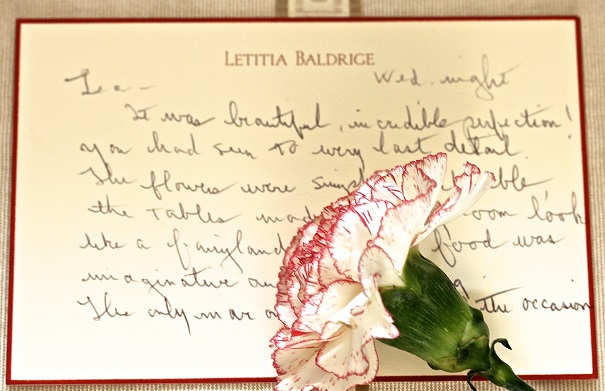 LETITIA BALDRIGE
Wed. night
It was beautiful, incredible perfection!
you had seen to every last detail.
The flowers were
the tables room look
like a fairyland food was
imaginative
The only the occasion